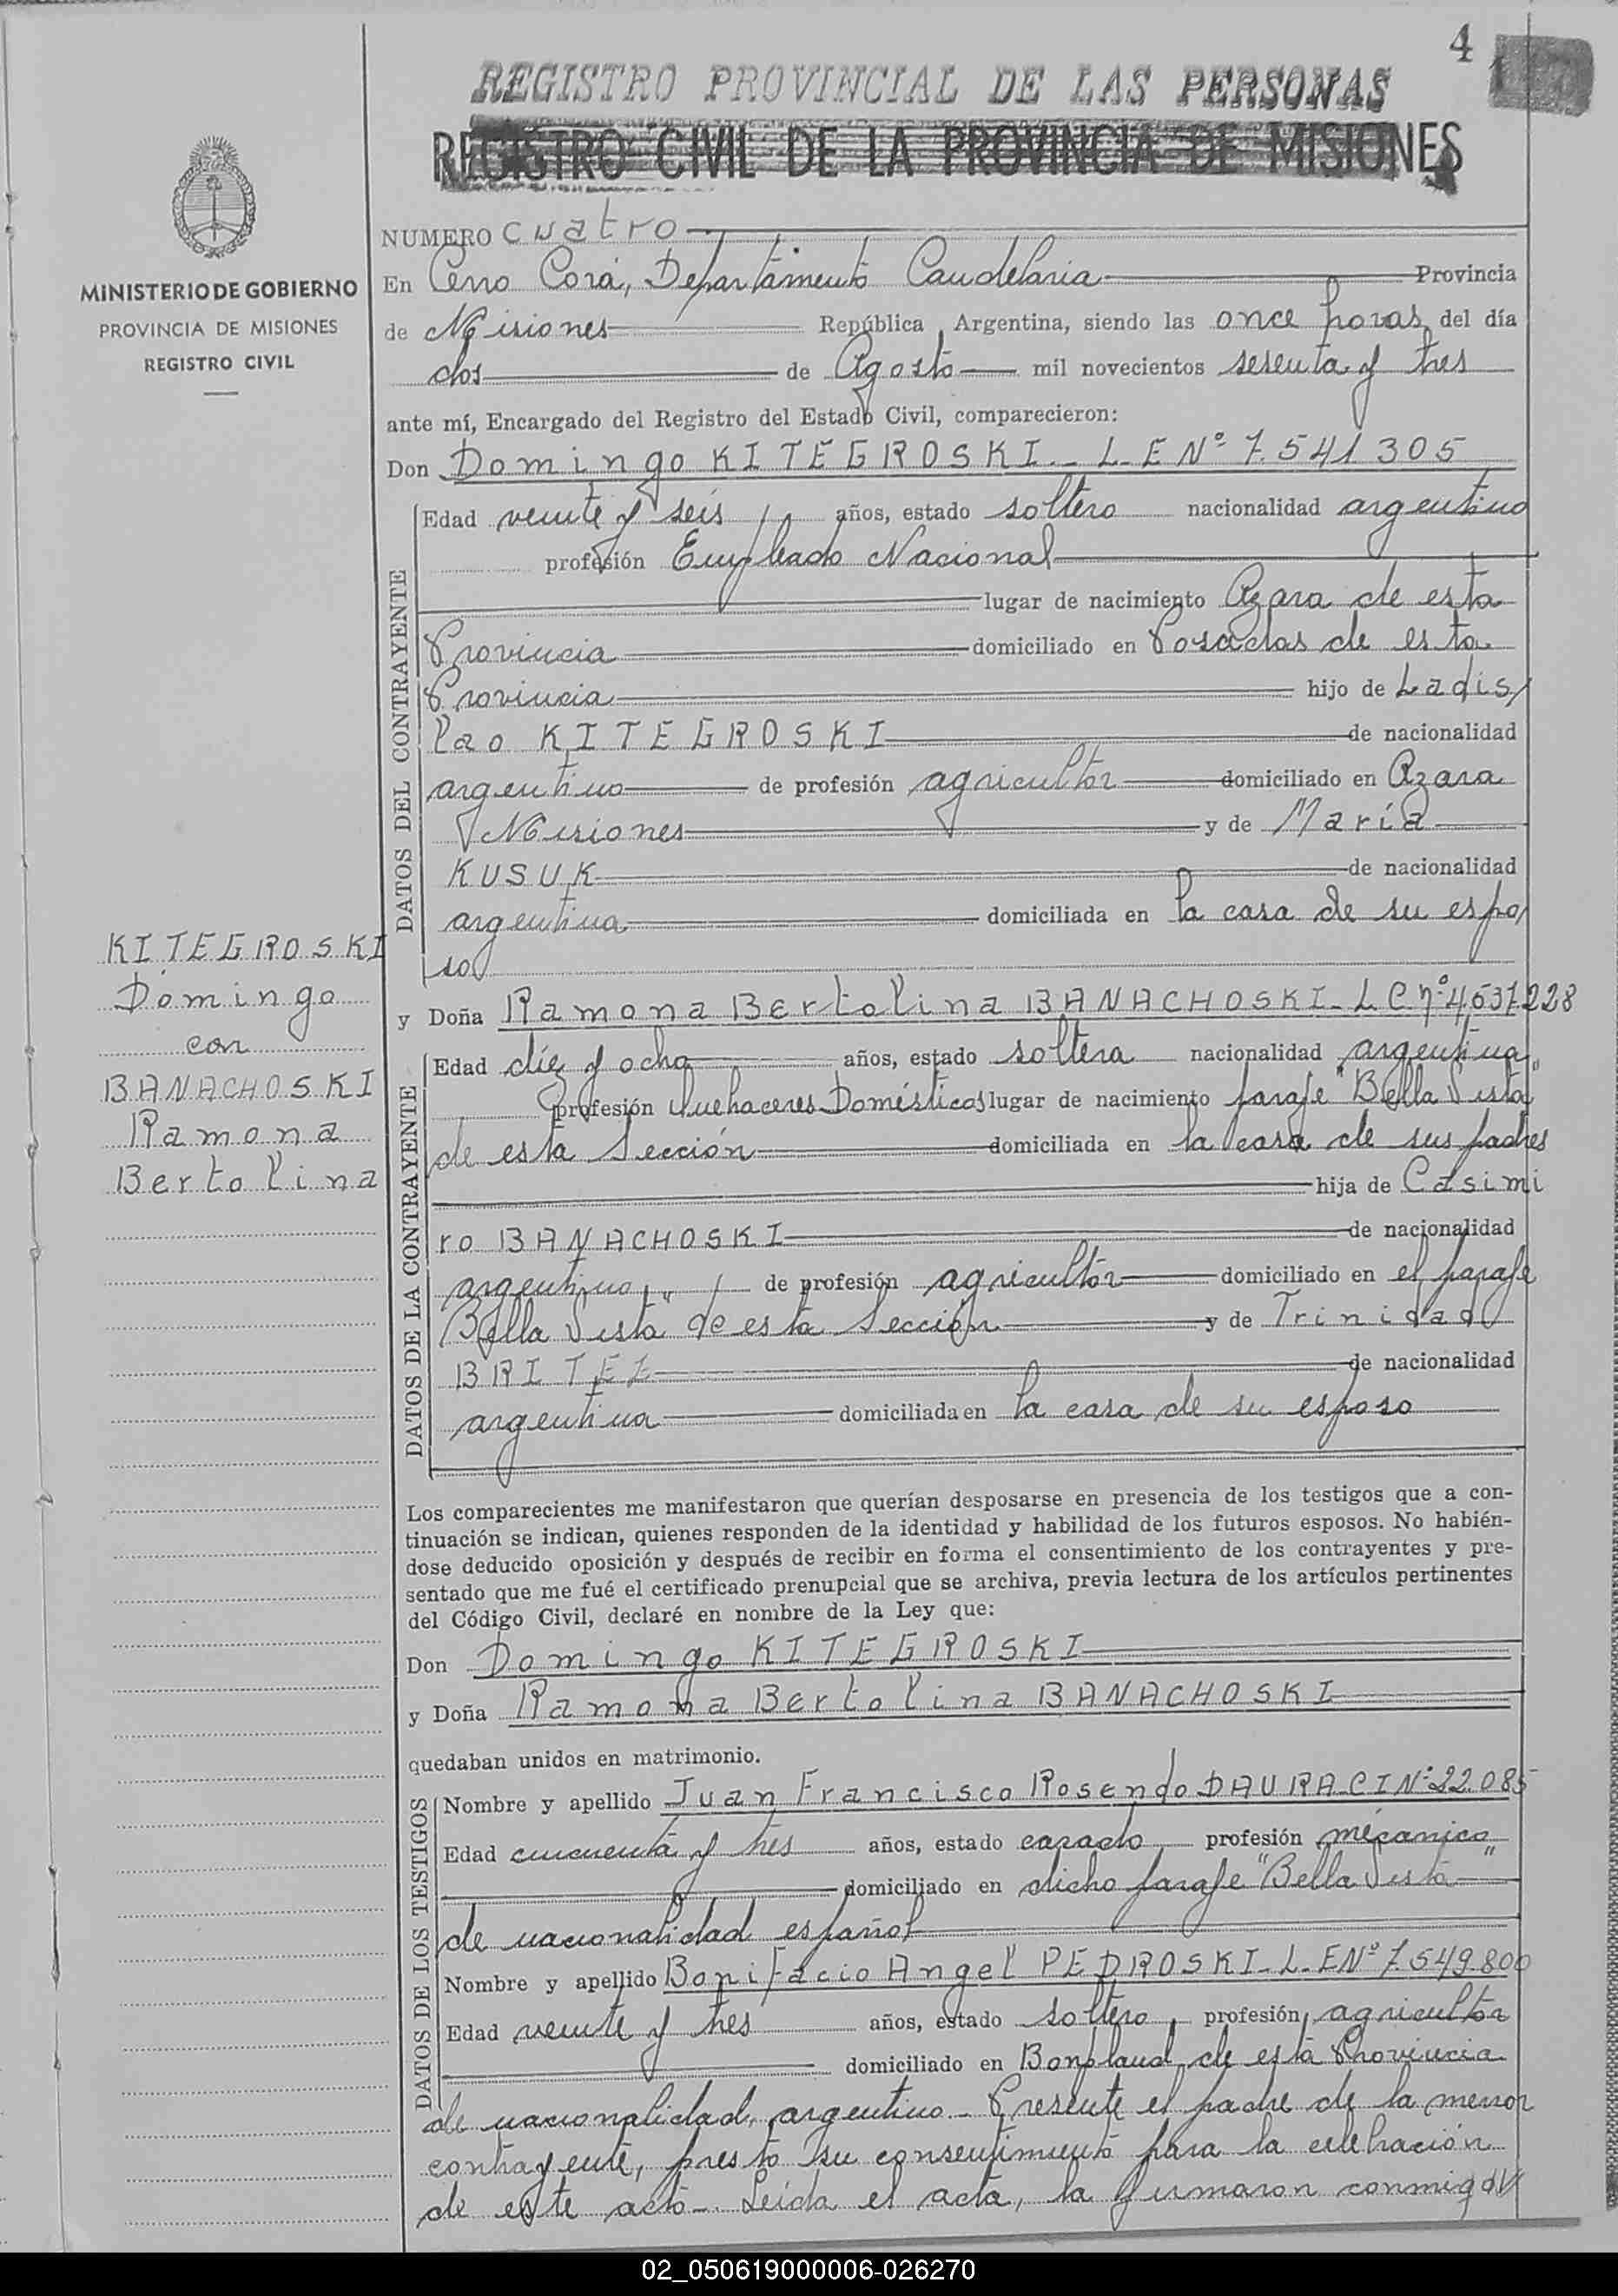 4
REGISTRO PROVINCIAL DE LAS PERSONAS
REGISTRO CIVIL DE LA PROVINCIA DE MISIONES
MINISTERIO DE GOBIERNO
PROVINCIA DE MISIONES
REGISTRO CIVIL
NUMERO cuatro
En Cerro Corá, Departamento Candelaria Provincia
de Misiones República Argentina, siendo las once horas del día
dos de Agosto mil novecientos sesenta y tres
ante mí, Encargado del Registro del Estado Civil, comparecieron:
Don Domingo KITEGROSKI - L-E Nº 7.541.305
DATOS DEL CONTRAYENTE
Edad veinte y seis años, estado soltero nacionalidad argentino
profesión Empleado Nacional
lugar de nacimiento Azara de esta
Provincia domiciliado en Posadas de esta
Provincia hijo de Ladis/
lao KITEGROSKI de nacionalidad
argentino de profesión agricultor domiciliado en Azara
Misiones y de María
KUSUK de nacionalidad
argentina domiciliada en la casa de su espo/
so
KITEGROSKI
Domingo
con
BANACHOSKI
Ramona
Bertolina
y Doña Ramona Bertolina BANACHOSKI - L C Nº 4.637.228
DATOS DE LA CONTRAYENTE
Edad diez y ocho años, estado soltera nacionalidad argentina
profesión Quehaceres Domésticos lugar de nacimiento paraje "Bella Vista"
de esta Sección domiciliada en la casa de sus padres
hija de Casimi
ro BANACHOSKI de nacionalidad
argentino de profesión agricultor domiciliado en el paraje
"Bella Vista" de esta Sección y de Trinidad
BRITEZ de nacionalidad
argentina domiciliada en la casa de su esposo
Los comparecientes me manifestaron que querían desposarse en presencia de los testigos que a con-
tinuación se indican, quienes responden de la identidad y habilidad de los futuros esposos. No habién-
dose deducido oposición y después de recibir en forma el consentimiento de los contrayentes y pre-
sentado que me fué el certificado prenupcial que se archiva, previa lectura de los artículos pertinentes
del Código Civil, declaré en nombre de la Ley que:
Don Domingo KITEGROSKI
y Doña Ramona Bertolina BANACHOSKI
quedaban unidos en matrimonio.
DATOS DE LOS TESTIGOS
Nombre y apellido Juan Francisco Rosendo DAURA - C I Nº 22.085
Edad cincuenta y tres años, estado casado profesión mecánico
domiciliado en dicho paraje "Bella Vista"
de nacionalidad español
Nombre y apellido Bonifacio Angel PEDROSKI - L - E Nº 7.549.800
DATOS DE LOS TESTIGOS
Edad veinte y tres años, estado soltero profesión agricultor
domiciliado en Bonpland de esta Provincia
de nacionalidad argentino - Presente el padre de la menor
contrayente, prestó su consentimiento para la celebración
de este acto - Leída el acta, la firmaron conmigo
02_050619000006-026270